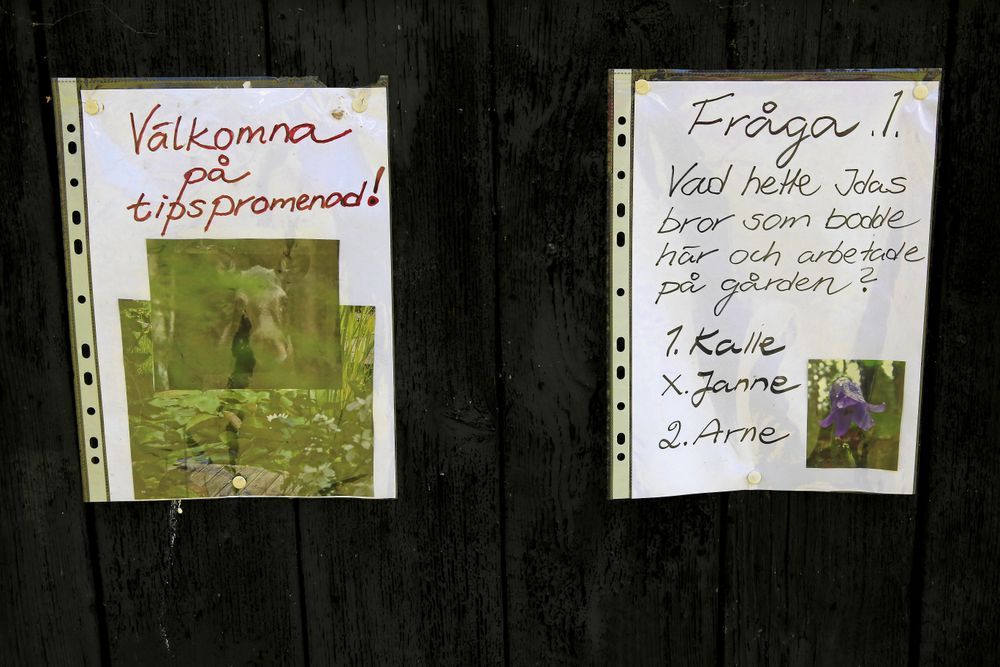 Välkomna
på
tipspromenad!
Fråga.1.
Vad hette Idas
bror som bodde
här och arbetade
på gården?
1. Kalle
X. Janne
2. Arne